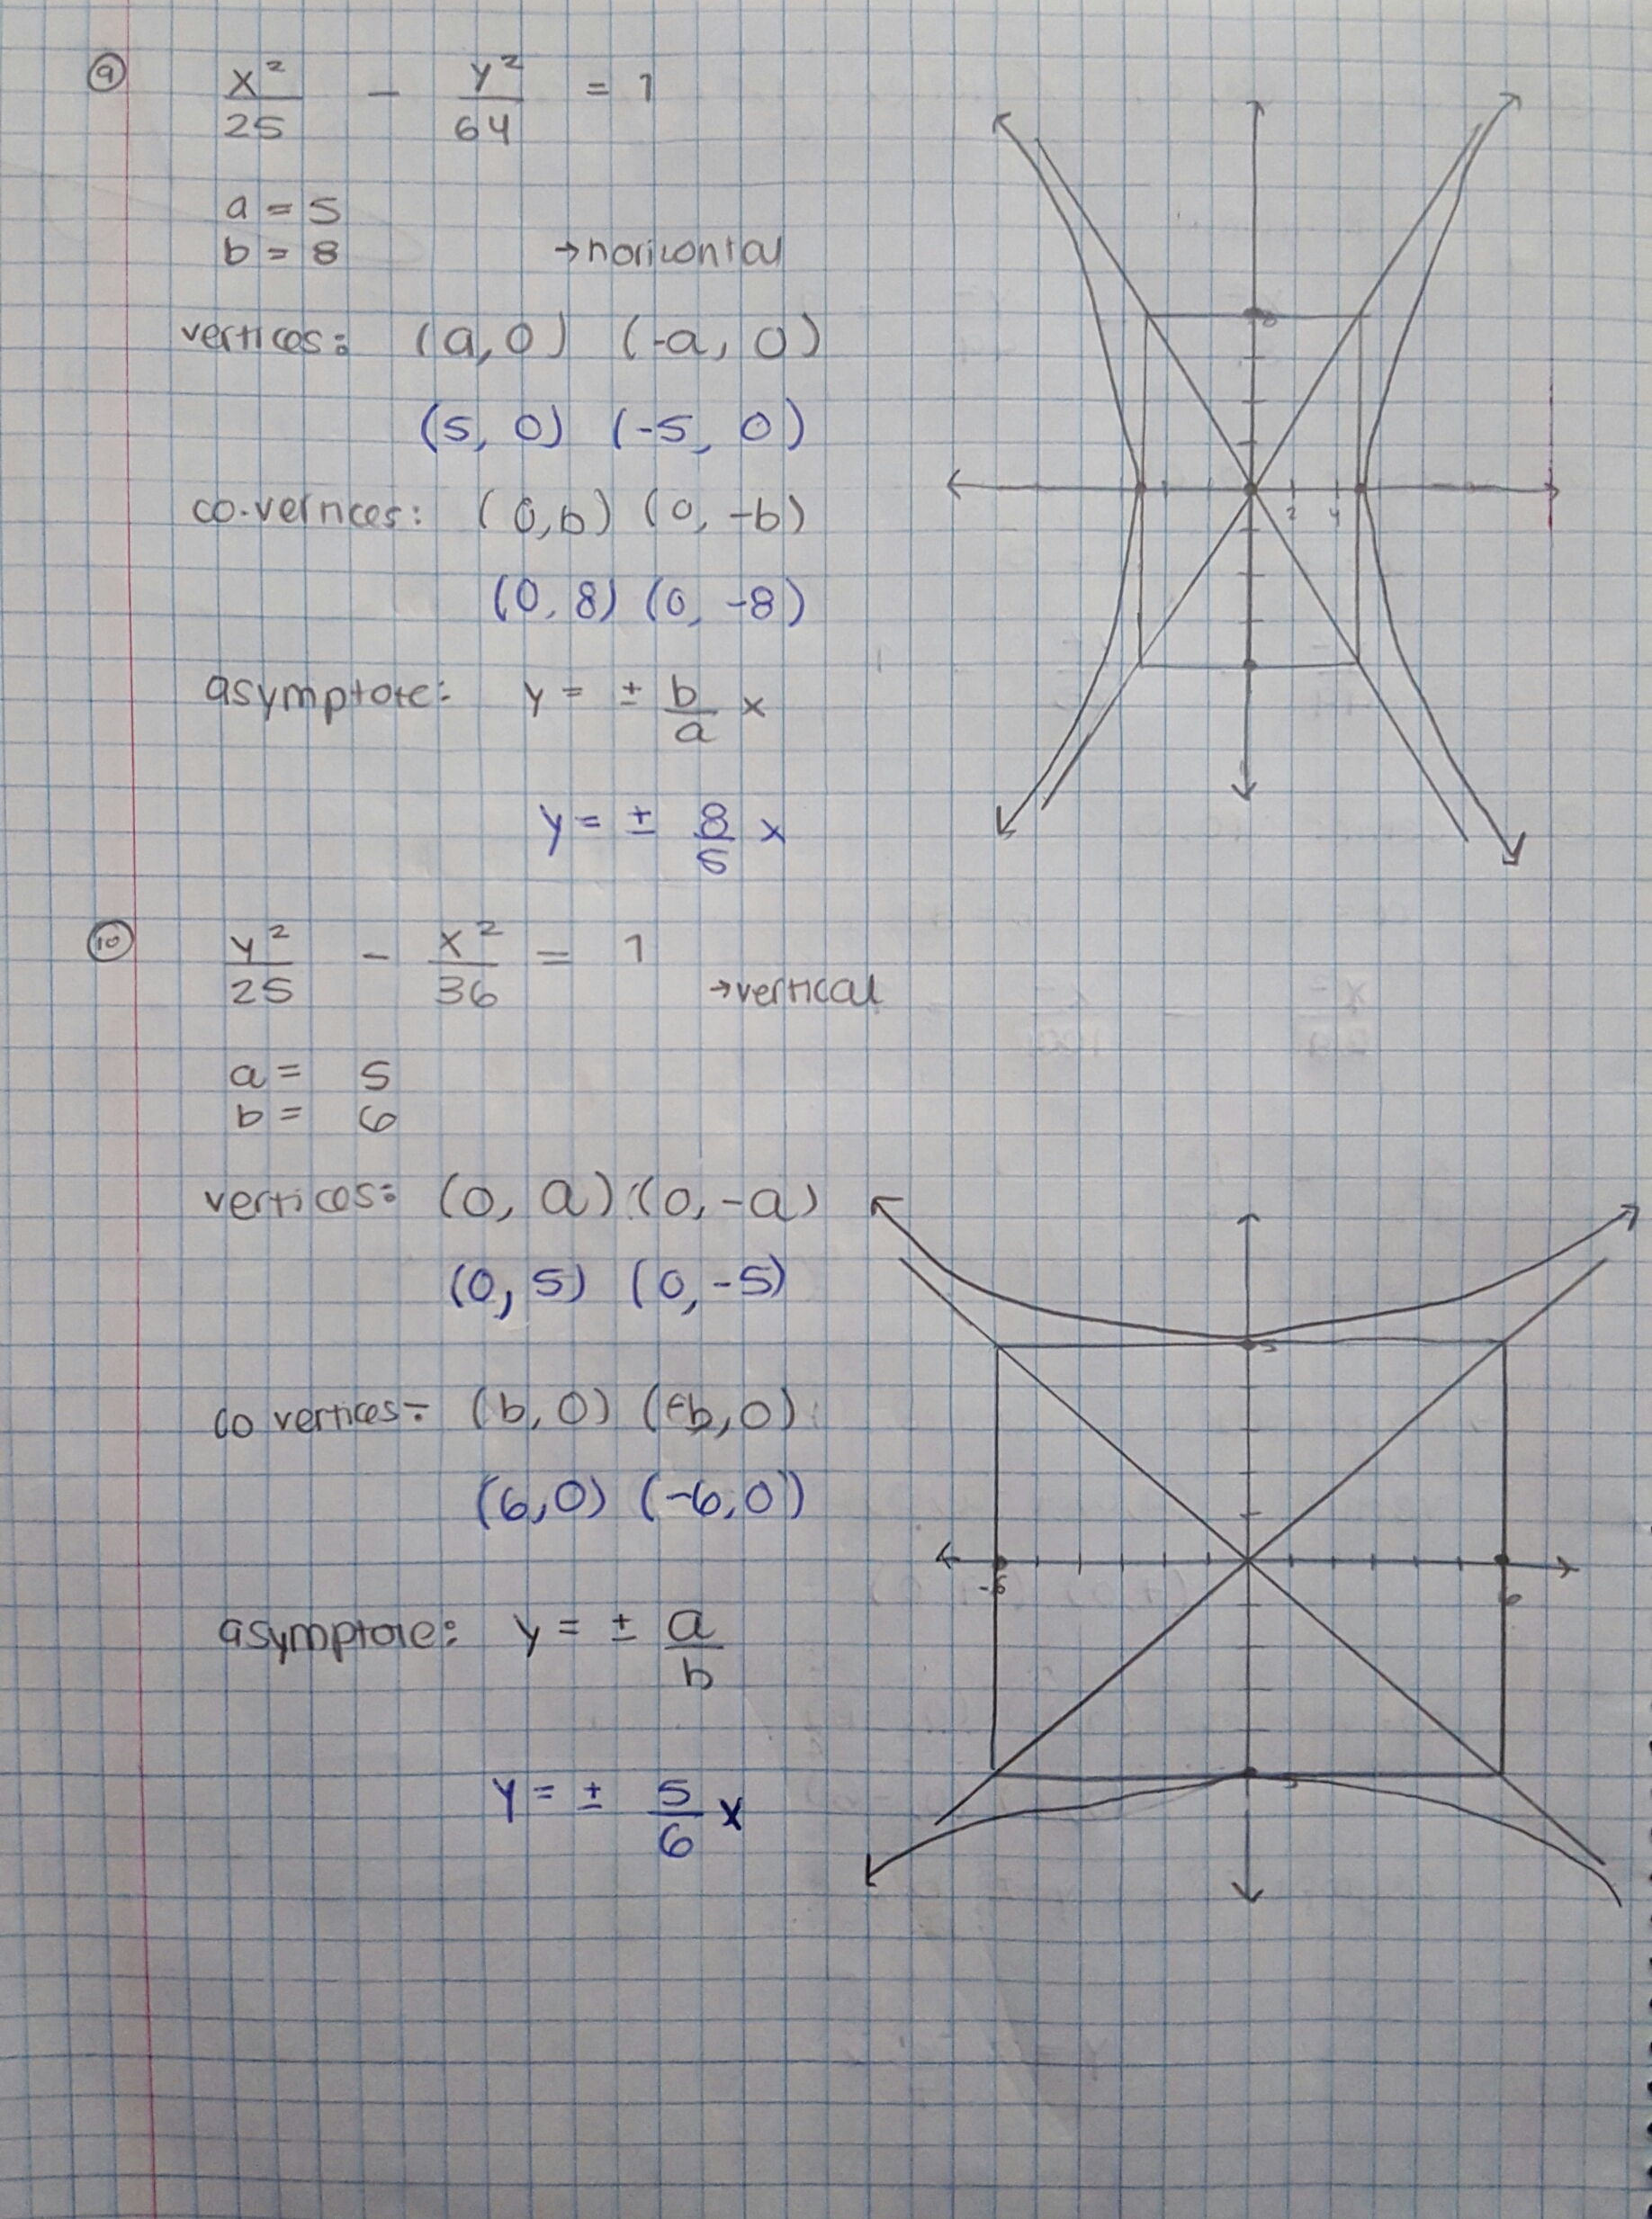 9
x² / 25 - y² / 64 = 1
a = 5
b = 8 → horizontal
vertices: (a, 0) (-a, 0)
(5, 0) (-5, 0)
co-vernices: (0, b) (0, -b)
(0, 8) (0, -8)
asymptote: y = ± b/a x
y = ± 8/5 x
8
2 4
10
y² / 25 - x² / 36 = 1
→ vertical
a = 5
b = 6
vertices: (0, a) (0, -a)
(0, 5) (0, -5)
co vertices: (b, 0) (-b, 0)
(6, 0) (-6, 0)
asymptote: y = ± a/b
y = ± 5/6 x
5
-6 6